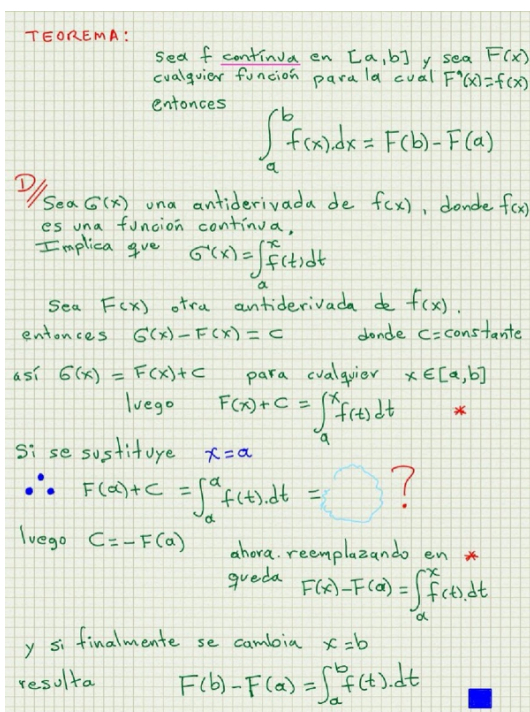 TEOREMA:
sea f continua en [a,b] y sea F(x)
cualquier función para la cual F'(x)=f(x)
entonces
∫_a^b f(x).dx = F(b) - F(a)
D//
Sea G(x) una antiderivada de f(x), donde f(x)
es una función contínua.
Implica que G(x)=∫_a^x f(t)dt
Sea F(x) otra antiderivada de f(x).
entonces G(x)-F(x)=C donde C=constante
así G(x) = F(x)+C para cualquier x∈[a,b]
luego F(x)+C = ∫_a^x f(t)dt *
Si se sustituye x=a
∴ F(a)+C = ∫_a^a f(t).dt = ?
luego C=-F(a)
ahora.reemplazando en *
queda F(x)-F(a)=∫_a^x f(t).dt
y si finalmente se cambia x=b
resulta F(b)-F(a)=∫_a^b f(t).dt